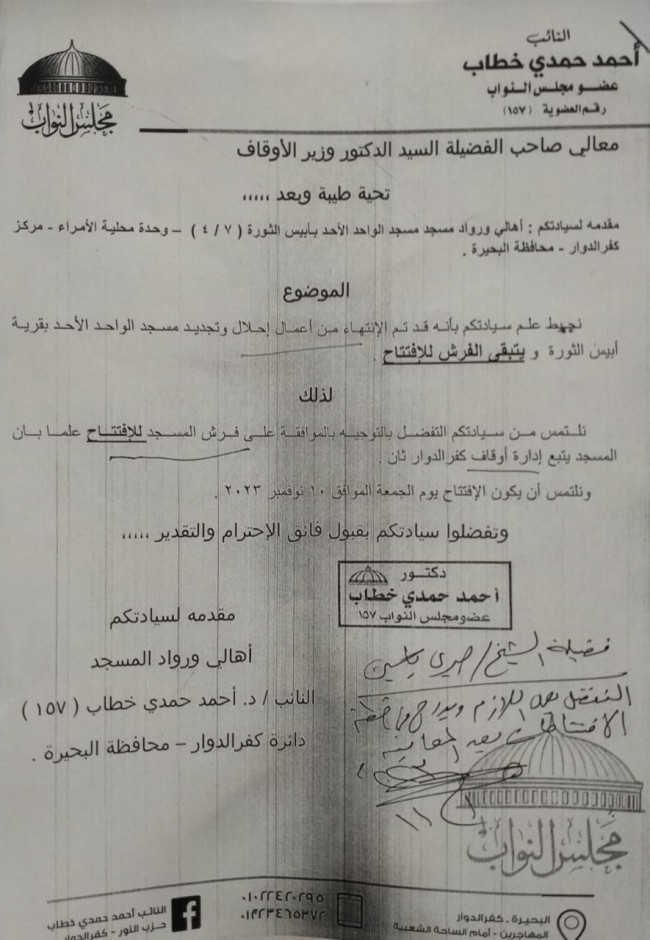 النائب
أحمد حمدي خطاب
عضو مجلس النواب
رقم العضوية (١٥٧)
مجلس النواب
معالي صاحب الفضيلة السيد الدكتور وزير الأوقاف
تحية طيبة وبعد ,,,,,
مقدمه لسيادتكم : أهالي ورواد مسجد مسجد الواحد الأحد بأبيس الثورة ( ٧ / ٤ ) – وحدة محلية الأمراء - مركز
كفرالدوار - محافظة البحيرة .
الموضوع
نحيط علم سيادتكم بأنه قد تم الإنتهاء من أعمال إحلال وتجديد مسجد الواحد الأحد بقرية
أبيس الثورة و يتبقى الفرش للإفتتاح .
لذلك
نلتمس من سيادتكم التفضل بالتوجيه بالموافقة على فرش المسجد للإفتتاح علما بان
المسجد يتبع إدارة أوقاف كفرالدوار ثان .
ونلتمس أن يكون الإفتتاح يوم الجمعة الموافق ١٠ نوفمبر ٢٠٢٣ .
وتفضلوا سيادتكم بقبول فائق الإحترام والتقدير ,,,,,
دكتور
أحمد حمدي خطاب
عضو مجلس النواب ١٥٧
مقدمه لسيادتكم
أهالي ورواد المسجد
النائب / د. أحمد حمدي خطاب ( ١٥٧ )
دائرة كفرالدوار – محافظة البحيرة .
فضيلة الشيخ / صبري ياسين
للازم ويدرج
الافتتاحات بعد المعاينة
مجلس النواب
النائب أحمد حمدي خطاب
حزب النور - كفرالدوار
٠١٠٢٢٤٢٠٢٩٥
٠١٢٢٣٤٦٥٣٧٢
البحيرة . كفرالدوار
المهاجرين - أمام الساحة الشعبية